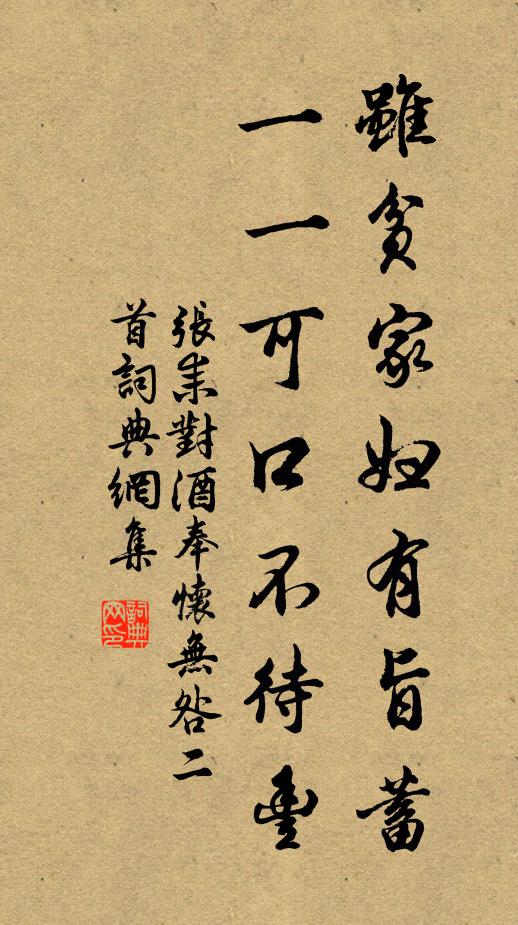 雖貧家妇有旨蓄
一一可口不待豊
張耒對酒奉懷無咎二
首詞典網集
詞典網印